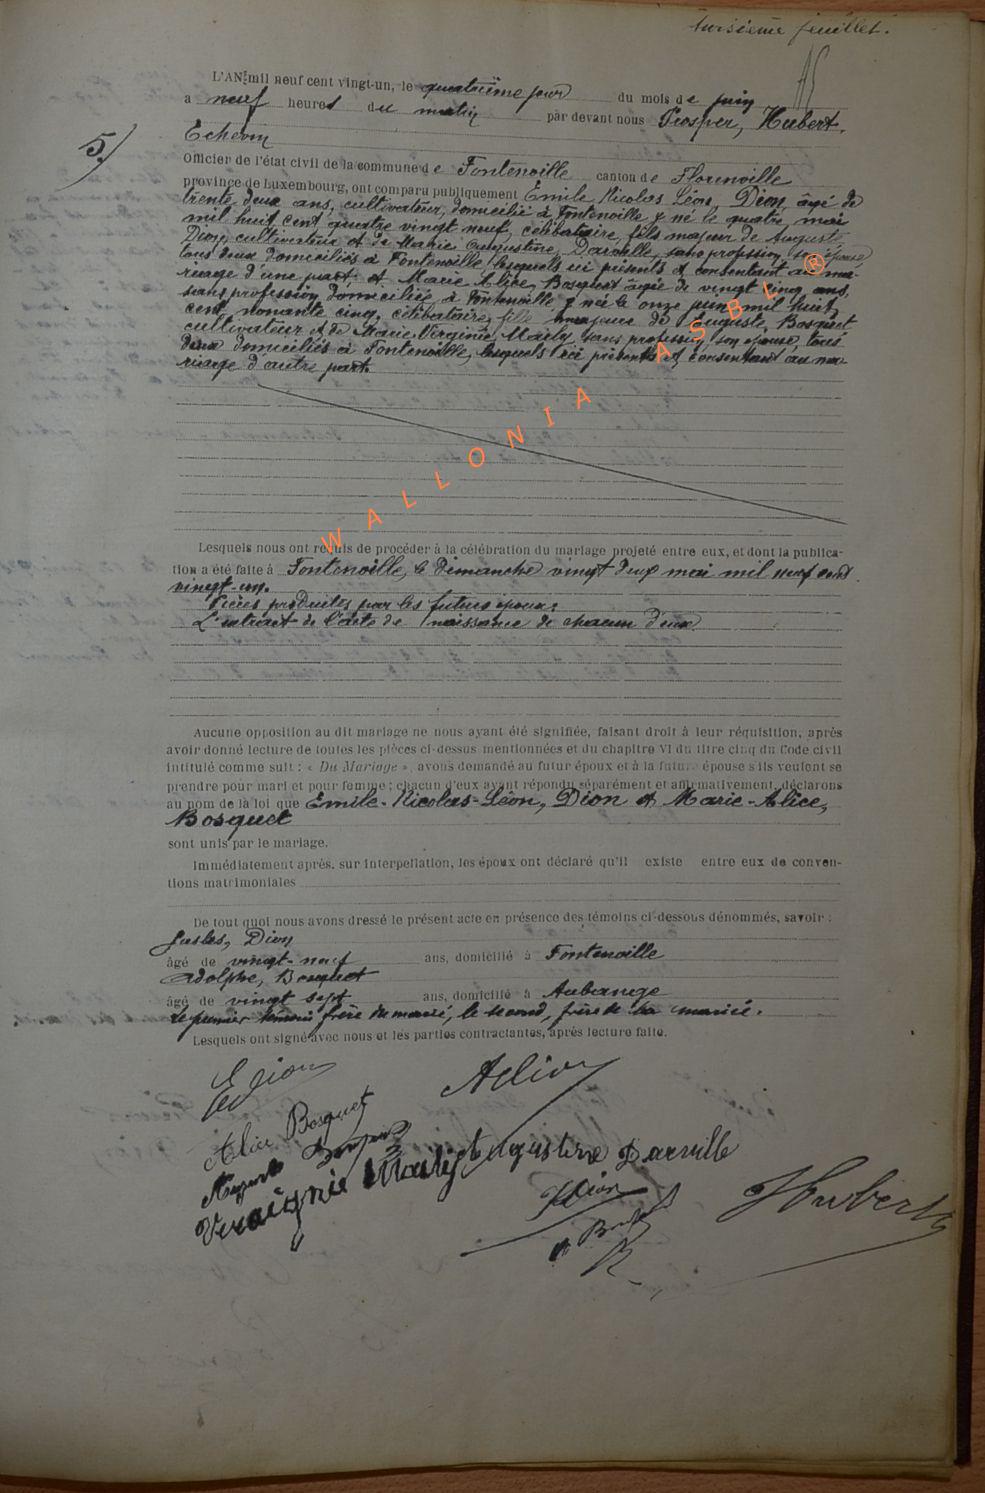 troisième feuillet.
5)
L'AN mil neuf cent vingt-un, le quatrième jour du mois de juin
a neuf heures du matin par devant nous Prosper, Hubert,
Echevin
Officier de l'état civil de la commune de Fontenoille canton de Florenville
province de Luxembourg, ont comparu publiquement Emile Nicolas Léon, Dion âgé de
trente deux ans, cultivateur, domicilié à Fontenoille & né le quatre mai
mil huit cent quatre vingt neuf, célibataire, fils majeur de Auguste
Dion, cultivateur et de Marie Augustine, Darville, sans profession, son épouse
tous deux domiciliés à Fontenoille, lesquels ici présents et consentant au ma-
riage d'une part, et Marie Alice, Bosquet âgée de vingt cinq ans,
sans profession, domiciliée à Fontenoille & née le onze juin mil huit
cent nonante cinq, célibataire, fille majeure de Auguste, Bosquet
cultivateur et de Marie Virginie Maily, sans profession, son épouse, tous
deux domiciliés à Fontenoille, lesquels ici présents et consentant au ma-
riage d'autre part.
WALLONIA ASBL ®
Lesquels nous ont requis de procéder à la célébration du mariage projeté entre eux, et dont la publica-
tion a été faite à Fontenoille, le Dimanche vingt deux mai mil neuf cent
vingt-un.
Pièces produites par les futurs époux:
L'extrait de l'acte de naissance de chacun d'eux.
Aucune opposition au dit mariage ne nous ayant été signifiée, faisant droit à leur réquisition, après
avoir donné lecture de toutes les pièces ci-dessus mentionnées et du chapitre VI du titre cinq du Code civil
intitulé comme suit : « Du Mariage », avons demandé au futur époux et à la future épouse s'ils veulent se
prendre pour mari et pour femme ; chacun d'eux ayant répondu séparément et affirmativement, déclarons
au nom de la loi que Emile-Nicolas-Léon, Dion et Marie-Alice,
Bosquet
sont unis par le mariage.
Immédiatement après, sur interpellation, les époux ont déclaré qu'il existe entre eux de conven-
tions matrimoniales
De tout quoi nous avons dressé le présent acte en présence des témoins ci-dessous dénommés, savoir :
Dion
âgé de vingt-neuf ans, domicilié à Fontenoille
Adolphe, Bosquet
âgé de vingt sept ans, domicilié à Aubange
Le premier témoin frère du marié, le second, frère de la mariée.
Lesquels ont signé avec nous et les parties contractantes, après lecture faite.
E Dion
A Dion
Alice Bosquet
Auguste Bosquet
Virginie Maily
Augustine Darville
Dion
Hubert